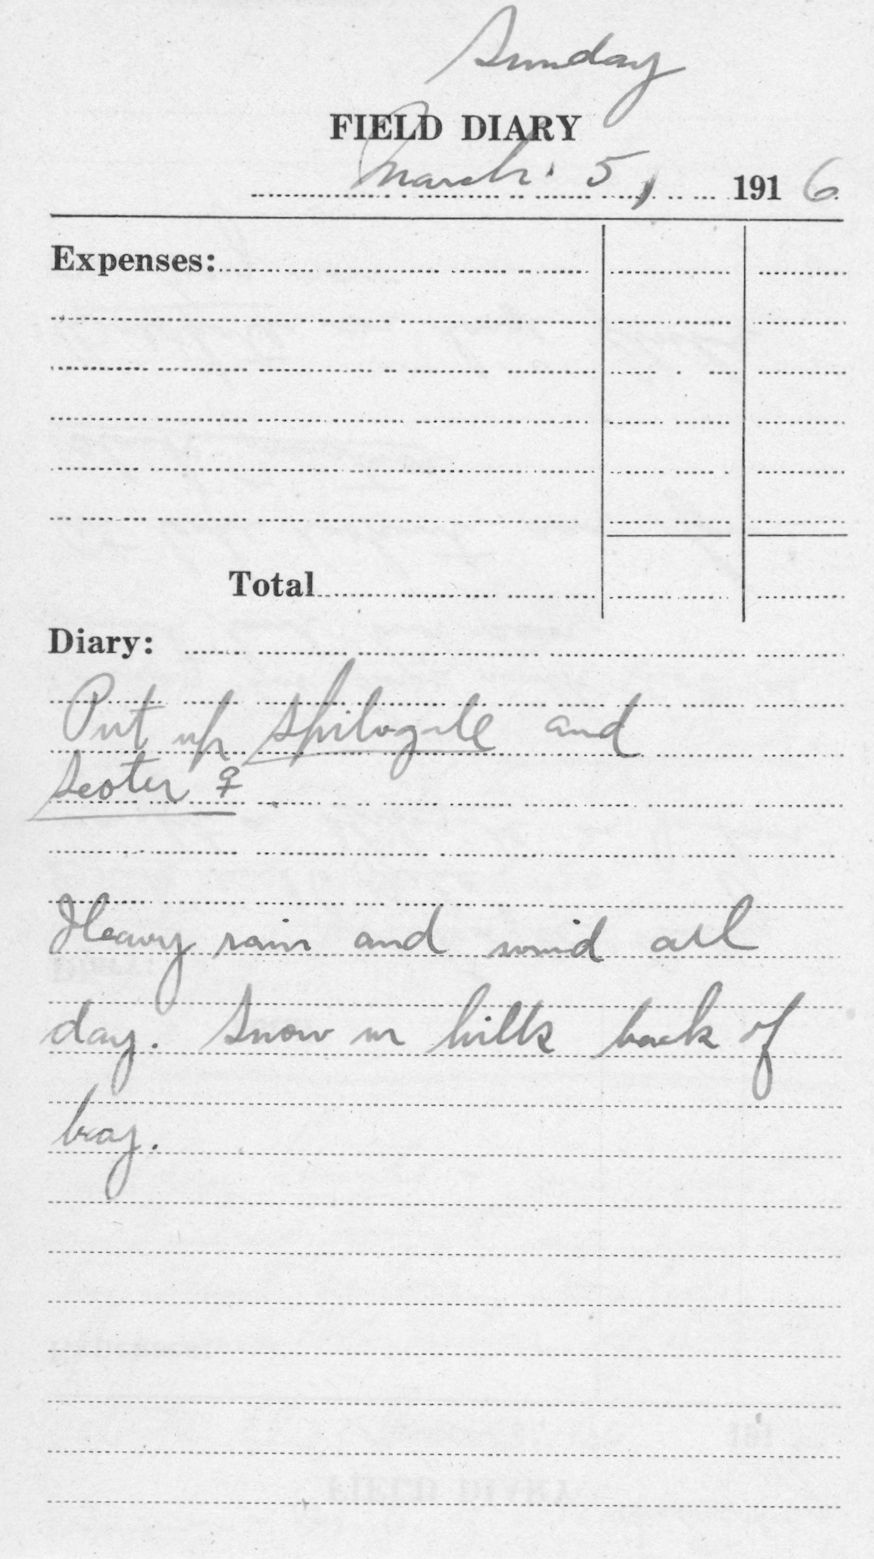 Sunday
FIELD DIARY
March 5, 1916
Expenses:
Total
Diary:
Put up Spilogale and
Scoter ♀
Heavy rain and wind all
day. Snow in hills back of
bay.